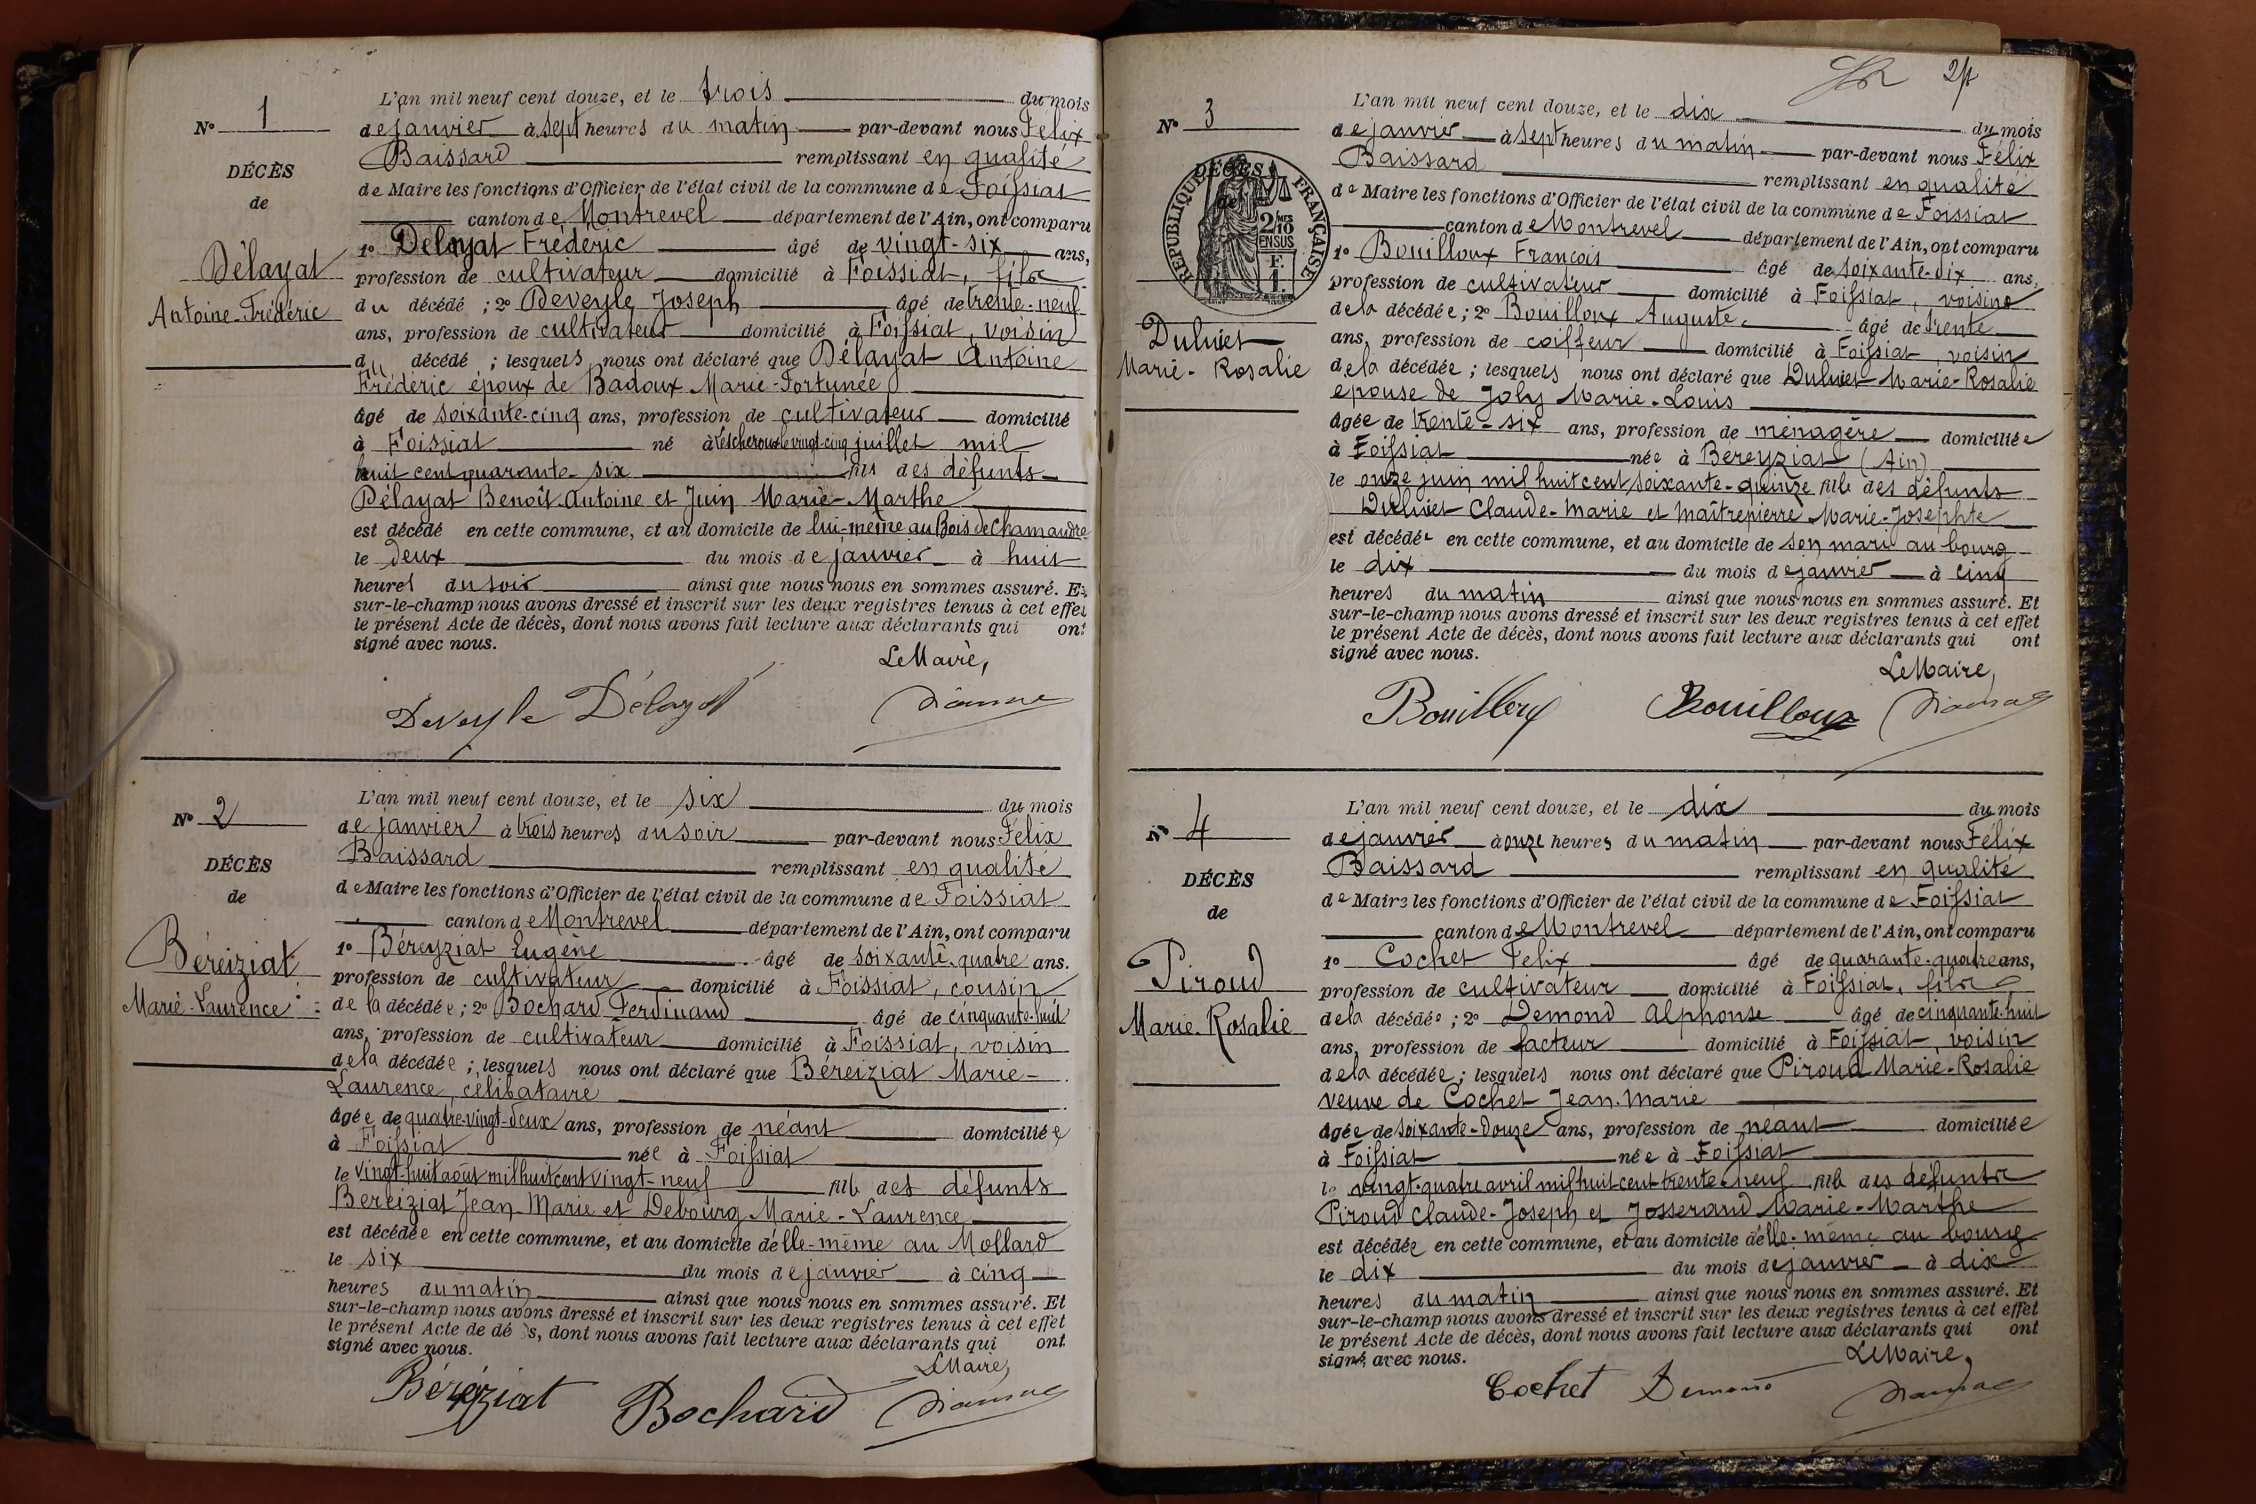 N° 1
DÉCÈS
de
Délayat
Antoine-Frédéric
L'an mil neuf cent douze, et le trois du mois
de janvier à sept heures du matin par-devant nous Félix
Baissard remplissant en qualité
de Maire les fonctions d'Officier de l'état civil de la commune de Foissiat
canton de Montrevel département de l'Ain, ont comparu
1° Delayat Frédéric âgé de vingt-six ans,
profession de cultivateur domicilié à Foissiat, fils
du décédé ; 2° Deveyle Joseph âgé de trente-neuf
ans, profession de cultivateur domicilié à Foissiat, voisin
du décédé ; lesquels nous ont déclaré que Délayat Antoine
Frédéric époux de Badoux Marie-Fortunée
âgé de soixante-cinq ans, profession de cultivateur domicilié
à Foissiat né à Lescheroux le vingt-cinq juillet mil
huit cent quarante-six fils des défunts
Délayat Benoît-Antoine et Juin Marie-Marthe
est décédé en cette commune, et au domicile de lui-même au Bois de Chamandre
le deux du mois de janvier à huit
heures du soir ainsi que nous nous en sommes assuré. Et
sur-le-champ nous avons dressé et inscrit sur les deux registres tenus à cet effet
le présent Acte de décès, dont nous avons fait lecture aux déclarants qui ont
signé avec nous.
Le Maire,
Deveyle Délayat
N° 2
DÉCÈS
de
Béreiziat
Marie-Laurence
L'an mil neuf cent douze, et le six du mois
de janvier à trois heures du soir par-devant nous Félix
Baissard remplissant en qualité
de Maire les fonctions d'Officier de l'état civil de la commune de Foissiat
canton de Montrevel département de l'Ain, ont comparu
1° Béreyziat Eugène âgé de soixante-quatre ans.
profession de cultivateur domicilié à Foissiat, cousin
de la décédée ; 2° Bochard Ferdinand âgé de cinquante-huit
ans, profession de cultivateur domicilié à Foissiat, voisin
de la décédée ; lesquels nous ont déclaré que Béreiziat Marie-
Laurence, célibataire
âgée de quatre-vingt-deux ans, profession de néant domiciliée
à Foissiat née à Foissiat
le vingt-huit aout mil huit cent vingt-neuf fille des défunts
Bereiziat Jean-Marie et Debourg Marie-Laurence
est décédée en cette commune, et au domicile d'elle-même au Mollard
le six du mois de janvier à cinq
heures du matin ainsi que nous nous en sommes assuré. Et
sur-le-champ nous avons dressé et inscrit sur les deux registres tenus à cet effet
le présent Acte de dé s, dont nous avons fait lecture aux déclarants qui ont
signé avec nous.
Le Maire,
Béreyziat Bochard
2
N° 3
DÉCÈS
de
RÉPUBLIQUE FRANÇAISE
2/10 EN SUS
F. 1.
Dulivet
Marie-Rosalie
L'an mil neuf cent douze, et le dix du mois
de janvier à sept heures du matin par-devant nous Félix
Baissard remplissant en qualité
de Maire les fonctions d'Officier de l'état civil de la commune de Foissiat
canton de Montrevel département de l'Ain, ont comparu
1° Bouilloux François âgé de soixante-dix ans,
profession de cultivateur domicilié à Foissiat, voisin
de la décédée ; 2° Bouilloux Auguste âgé de trente
ans, profession de coiffeur domicilié à Foissiat, voisin
de la décédée ; lesquels nous ont déclaré que Dulivet Marie-Rosalie
epouse de Joly Marie-Louis
âgée de trente-six ans, profession de ménagère domiciliée
à Foissiat née à Béreyziat (Ain)
le onze juin mil huit cent soixante-quinze fille des défunts
Dulivet Claude-Marie et Maîtrepierre Marie-Josephte
est décédée en cette commune, et au domicile de son mari au bourg
le dix du mois de janvier à cinq
heures du matin ainsi que nous nous en sommes assuré. Et
sur-le-champ nous avons dressé et inscrit sur les deux registres tenus à cet effet
le présent Acte de décès, dont nous avons fait lecture aux déclarants qui ont
signé avec nous.
Le Maire,
Bouilloux Bouilloux
N° 4
DÉCÈS
de
Piroud
Marie-Rosalie
L'an mil neuf cent douze, et le dix du mois
de janvier à onze heures du matin par-devant nous Félix
Baissard remplissant en qualité
de Maire les fonctions d'Officier de l'état civil de la commune de Foissiat
canton de Montrevel département de l'Ain, ont comparu
1° Cochet Felix âgé de quarante-quatre ans,
profession de cultivateur domicilié à Foissiat, fils
de la décédée ; 2° Demond Alphonse âgé de cinquante-huit
ans, profession de facteur domicilié à Foissiat, voisin
de la décédée ; lesquels nous ont déclaré que Piroud Marie-Rosalie
veuve de Cochet Jean-Marie
âgée de soixante-douze ans, profession de néant domiciliée
à Foissiat née à Foissiat
le vingt-quatre avril mil huit cent trente-neuf fille des défunts
Piroud Claude-Joseph et Josserand Marie-Marthe
est décédée en cette commune, et au domicile d'elle-même au bourg
le dix du mois de janvier à dix
heures du matin ainsi que nous nous en sommes assuré. Et
sur-le-champ nous avons dressé et inscrit sur les deux registres tenus à cet effet
le présent Acte de décès, dont nous avons fait lecture aux déclarants qui ont
signé avec nous.
Le Maire,
Cochet Demond